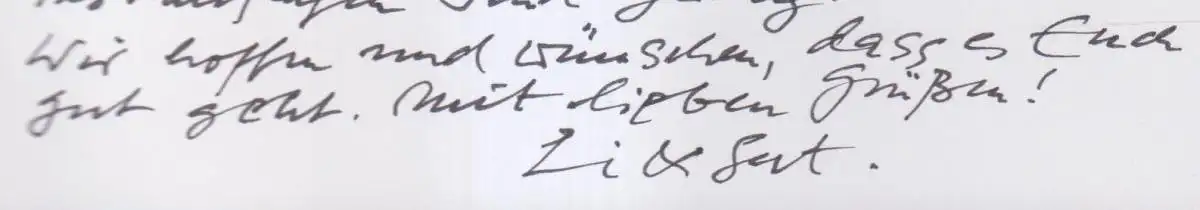 Wir hoffen und wünschen, dass es Euch
gut geht. Mit lieben Grüßen!
Li & Gert.